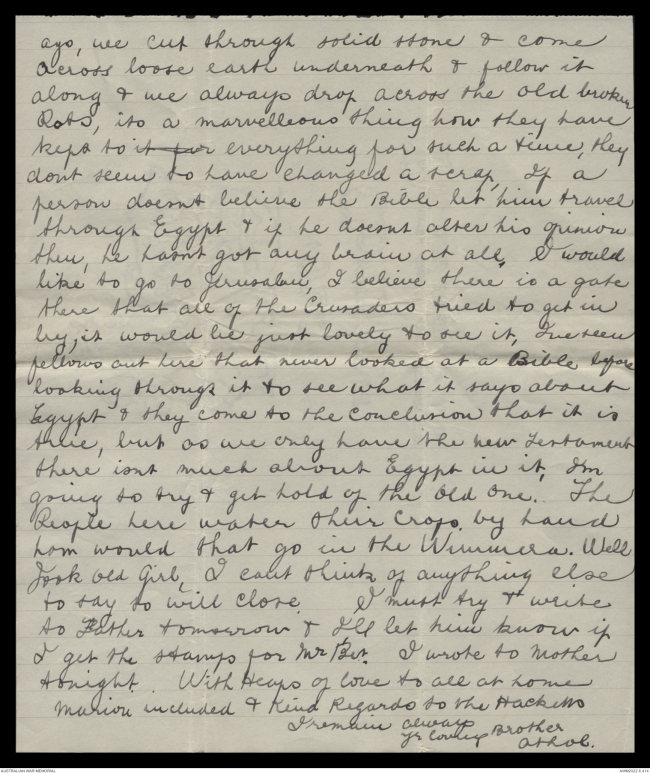 ago, we cut through solid stone & come
across loose earth underneath & follow it
along & we always drop across the old broken
Pots, its a marvelleous thing how they have
kept to it for everything for such a time, they
dont seem to have changed a scrap, If a
person doesnt believe the Bible let him travel
through Egypt & if he doesnt alter his opinion
then, he hasnt got any brain at all, I would
like to go to Jerusalem, I believe there is a gate
there that all of the Crusaders tried to get in
by, it would be just lovely to see it, Ive seen
fellows out here that never looked at a Bible before
looking through it to see what it says about
Egypt & they come to the conclusion that it is
true, but as we only have the new Testament
there isnt much about Egypt in it, Im
going to try & get hold of the old one. The
People here water their Crops, by hand
how would that go in the Wimmera. Well
Jook old Girl, I cant think of anything else
to say so will close. I must try & write
to Father tomorrow & I'll let him know if
I get the stamps for Mr I wrote to Mother
tonight. With Heaps of love to all at home
Marion included & Kind Regards to the Hacketts
I remain always
Yr loving Brother
Athol.
AUSTRALIAN WAR MEMORIAL